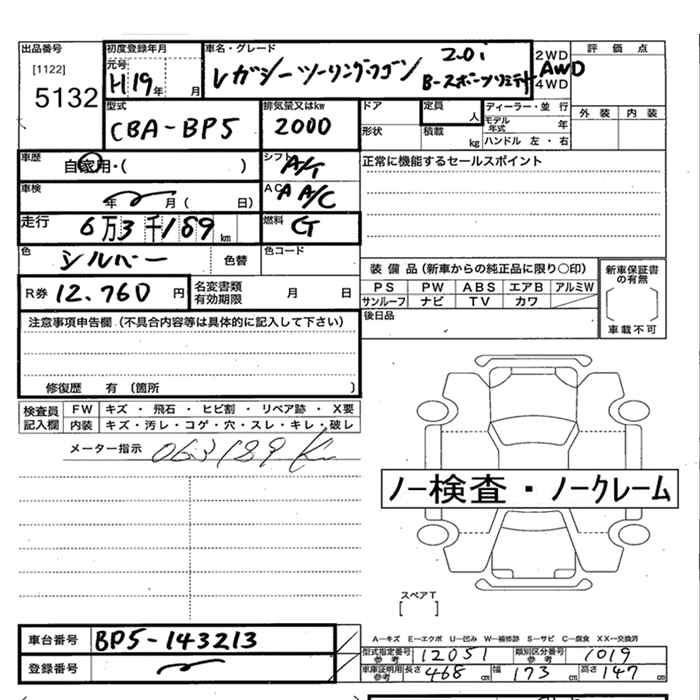 出品番号
[1122]
5132
初度登録年月
元号
H19年 月
車名・グレード
2.0i
レガシーツーリングワゴン B-スポーツリミテッド
2WD
AWD
4WD
評価点
外装 内装
型式
CBA-BP5
排気量又はkw
2000
ドア
形状
定員
人
積載
kg
ディーラー・並行
モデル年式 年
ハンドル 左・右
車歴
自家用・( )
シフト
A/T
正常に機能するセールスポイント
車検
年 月( 日)
AC
AA/C
走行
6万3千189km
燃料
G
色
シルバー
色替
色コード
装備品(新車からの純正品に限り○印)
PS PW ABS エアB アルミW
サンルーフ ナビ TV カワ
新車保証書の有無
[ ]
車載不可
R券 12.760円
名変書類有効期限 月 日
後日品
注意事項申告欄(不具合内容等は具体的に記入して下さい)
修復歴 有(箇所 )
検査員記入欄
FW キズ・飛石・ヒビ割・リペア跡・X要
内装 キズ・汚レ・コゲ・穴・スレ・キレ・破レ
メーター指示
063189Km
ノー検査・ノークレーム
スペアT
[ ]
車台番号
BP5-143213
登録番号
A―キズ E―エクボ U―凹み W―補修跡 S―サビ C―腐食 XX―交換済
型式指定番号参考 12051 類別区分番号参考 1019
車庫証明用参考 長さ 468cm 幅 173cm 高さ 147cm